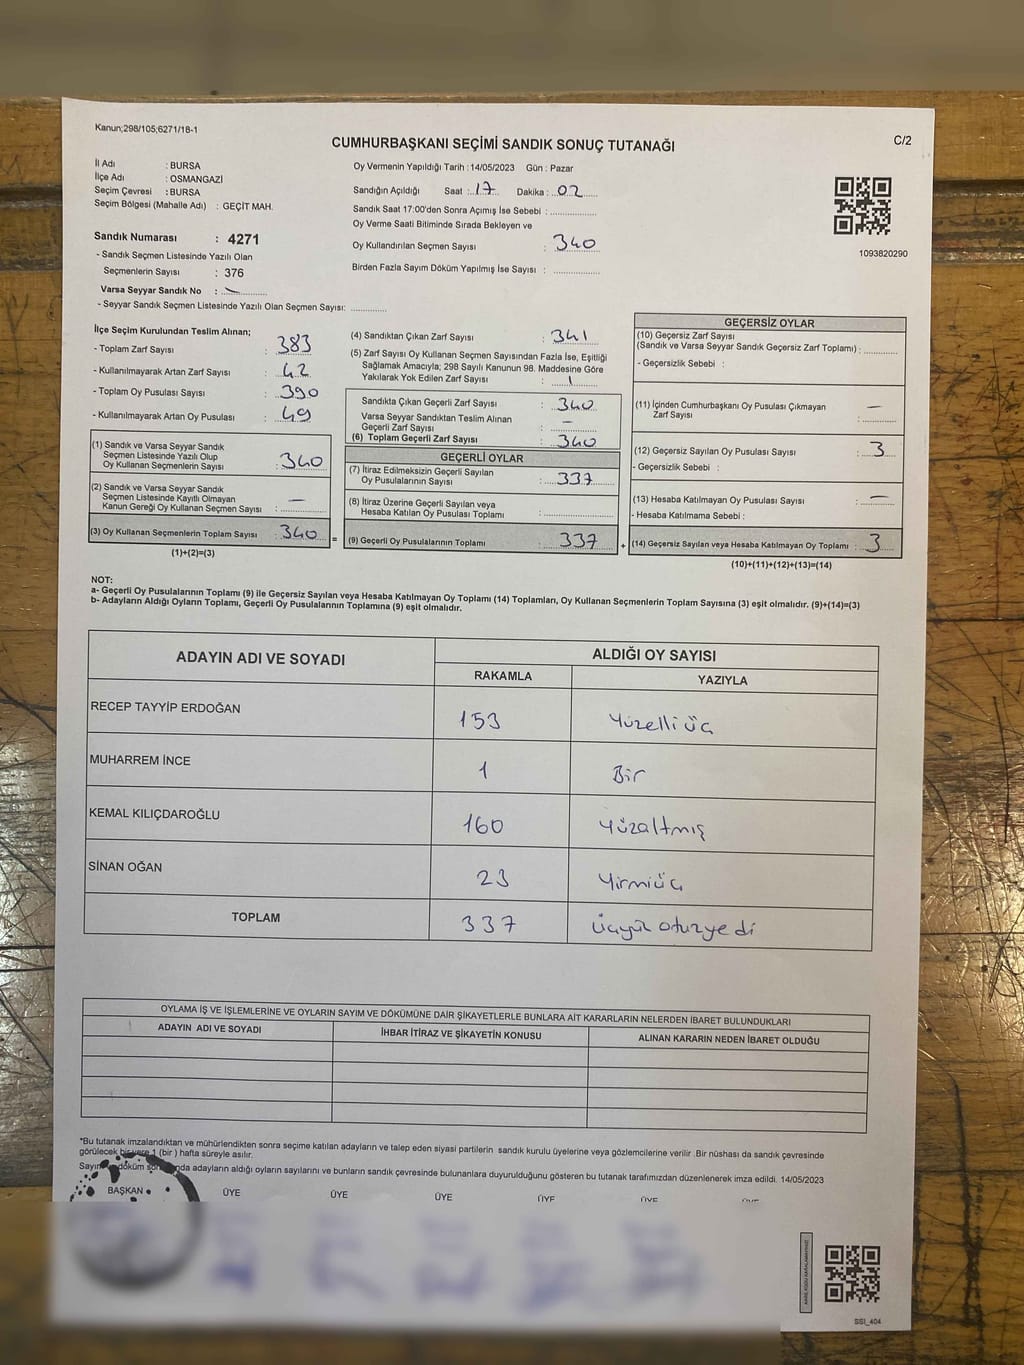 Kanun;298/105;6271/18-1
C/2
CUMHURBAŞKANI SEÇİMİ SANDIK SONUÇ TUTANAĞI
İl Adı : BURSA
İlçe Adı : OSMANGAZİ
Seçim Çevresi : BURSA
Seçim Bölgesi (Mahalle Adı) : GEÇİT MAH.
Sandık Numarası : 4271
- Sandık Seçmen Listesinde Yazılı Olan
Seçmenlerin Sayısı : 376
Varsa Seyyar Sandık No : —
- Seyyar Sandık Seçmen Listesinde Yazılı Olan Seçmen Sayısı: ..............
Oy Vermenin Yapıldığı Tarih : 14/05/2023 Gün : Pazar
Sandığın Açıldığı Saat : 17 Dakika : 02
Sandık Saat 17:00'den Sonra Açımış İse Sebebi : ..............
Oy Verme Saati Bitiminde Sırada Bekleyen ve
Oy Kullandırılan Seçmen Sayısı : 340
Birden Fazla Sayım Döküm Yapılmış İse Sayısı : ..............
1093820290
İlçe Seçim Kurulundan Teslim Alınan;
- Toplam Zarf Sayısı : 383
- Kullanılmayarak Artan Zarf Sayısı : 42
- Toplam Oy Pusulası Sayısı : 390
- Kullanılmayarak Artan Oy Pusulası : 49
(1) Sandık ve Varsa Seyyar Sandık
Seçmen Listesinde Yazılı Olup
Oy Kullanan Seçmenlerin Sayısı : 340
(2) Sandık ve Varsa Seyyar Sandık
Seçmen Listesinde Kayıtlı Olmayan
Kanun Gereği Oy Kullanan Seçmen Sayısı : —
(3) Oy Kullanan Seçmenlerin Toplam Sayısı : 340 =
(1)+(2)=(3)
(4) Sandıktan Çıkan Zarf Sayısı : 341
(5) Zarf Sayısı Oy Kullanan Seçmen Sayısından Fazla İse, Eşitliği
Sağlamak Amacıyla; 298 Sayılı Kanunun 98. Maddesine Göre
Yakılarak Yok Edilen Zarf Sayısı : 1
Sandıkta Çıkan Geçerli Zarf Sayısı : 340
Varsa Seyyar Sandıktan Teslim Alınan
Geçerli Zarf Sayısı : —
(6) Toplam Geçerli Zarf Sayısı : 340
GEÇERLİ OYLAR
(7) İtiraz Edilmeksizin Geçerli Sayılan
Oy Pusulalarının Sayısı : 337
(8) İtiraz Üzerine Geçerli Sayılan veya
Hesaba Katılan Oy Pusulası Toplamı : ..............
(9) Geçerli Oy Pusulalarının Toplamı : 337 +
GEÇERSİZ OYLAR
(10) Geçersiz Zarf Sayısı
(Sandık ve Varsa Seyyar Sandık Geçersiz Zarf Toplamı) : ..............
- Geçersizlik Sebebi :
(11) İçinden Cumhurbaşkanı Oy Pusulası Çıkmayan
Zarf Sayısı : —
(12) Geçersiz Sayılan Oy Pusulası Sayısı : 3
- Geçersizlik Sebebi :
(13) Hesaba Katılmayan Oy Pusulası Sayısı : —
- Hesaba Katılmama Sebebi :
(14) Geçersiz Sayılan veya Hesaba Katılmayan Oy Toplamı : 3
(10)+(11)+(12)+(13)=(14)
NOT:
a- Geçerli Oy Pusulalarının Toplamı (9) ile Geçersiz Sayılan veya Hesaba Katılmayan Oy Toplamı (14) Toplamları, Oy Kullanan Seçmenlerin Toplam Sayısına (3) eşit olmalıdır. (9)+(14)=(3)
b- Adayların Aldığı Oyların Toplamı, Geçerli Oy Pusulalarının Toplamına (9) eşit olmalıdır.
ADAYIN ADI VE SOYADI ALDIĞI OY SAYISI
RAKAMLA YAZIYLA
RECEP TAYYİP ERDOĞAN 153 Yüzelliüç
MUHARREM İNCE 1 Bir
KEMAL KILIÇDAROĞLU 160 Yüzaltmış
SİNAN OĞAN 23 Yirmiüç
TOPLAM 337 Üçyüz otuzyedi
OYLAMA İŞ VE İŞLEMLERİNE VE OYLARIN SAYIM VE DÖKÜMÜNE DAİR ŞİKAYETLERLE BUNLARA AİT KARARLARIN NELERDEN İBARET BULUNDUKLARI
ADAYIN ADI VE SOYADI İHBAR İTİRAZ VE ŞİKAYETİN KONUSU ALINAN KARARIN NEDEN İBARET OLDUĞU
*Bu tutanak imzalandıktan ve mühürlendikten sonra seçime katılan adayların ve talep eden siyasi partilerin sandık kurulu üyelerine veya gözlemcilerine verilir .Bir nüshası da sandık çevresinde
görülecek bir yere 1 (bir ) hafta süreyle asılır.
döküm adayların aldığı oyların sayılarını ve bunların sandık çevresinde bulunanlara duyurulduğunu gösteren bu tutanak tarafımızdan düzenlenerek imza edildi. 14/05/2023
BAŞKAN ÜYE ÜYE ÜYE ÜYE ÜYE
SSI_404